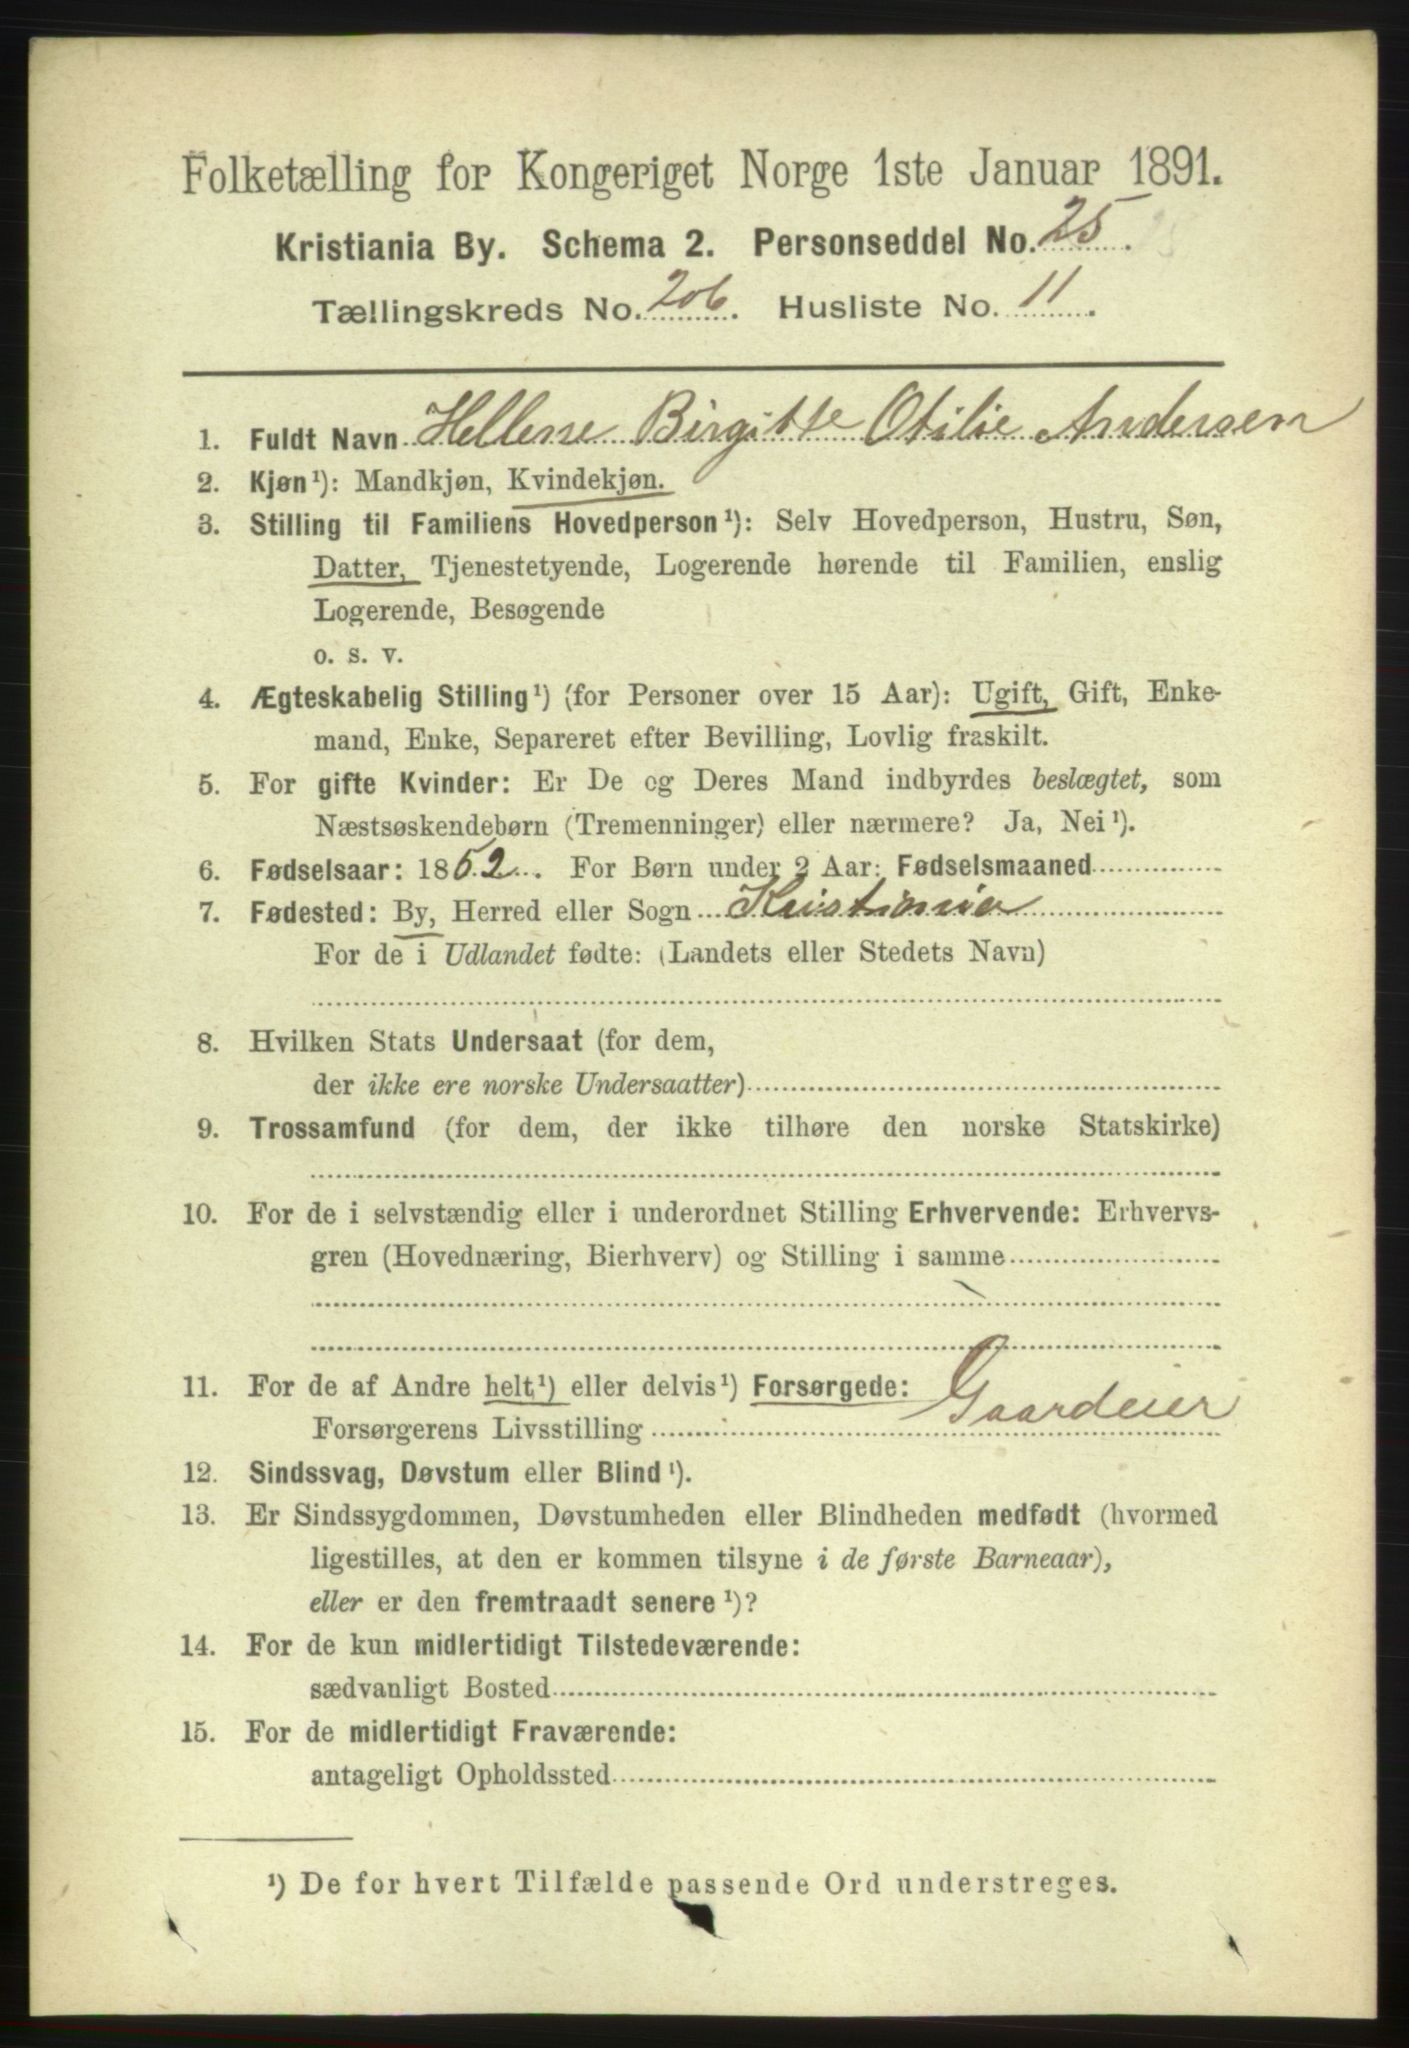 Folketælling for Kongeriget Norge 1ste Januar 1891.
Kristiania By. Schema 2. Personseddel No. 25.
Tællingskreds No. 206. Husliste No. 11.
1. Fuldt Navn Hellene Birgitte Otilie Andersen
2. Kjøn¹): Mandkjøn, Kvindekjøn.
3. Stilling til Familiens Hovedperson¹): Selv Hovedperson, Hustru, Søn,
Datter, Tjenestetyende, Logerende hørende til Familien, enslig
Logerende, Besøgende
o. s. v.
4. Ægteskabelig Stilling¹) (for Personer over 15 Aar): Ugift, Gift, Enke-
mand, Enke, Separeret efter Bevilling, Lovlig fraskilt.
5. For gifte Kvinder: Er De og Deres Mand indbyrdes beslægtet, som
Næstsøskendebørn (Tremenninger) eller nærmere? Ja, Nei¹).
6. Fødselsaar: 1852. For Børn under 2 Aar: Fødselsmaaned
7. Fødested: By, Herred eller Sogn Kristiania
For de i Udlandet fødte: (Landets eller Stedets Navn)
8. Hvilken Stats Undersaat (for dem,
der ikke ere norske Undersaatter)
9. Trossamfund (for dem, der ikke tilhøre den norske Statskirke)
10. For de i selvstændig eller i underordnet Stilling Erhvervende: Erhvervs-
gren (Hovednæring, Bierhverv) og Stilling i samme
11. For de af Andre helt¹) eller delvis¹) Forsørgede:
Forsørgerens Livsstilling Gaardeier
12. Sindssvag, Døvstum eller Blind¹).
13. Er Sindssygdommen, Døvstumheden eller Blindheden medfødt (hvormed
ligestilles, at den er kommen tilsyne i de første Barneaar),
eller er den fremtraadt senere¹)?
14. For de kun midlertidigt Tilstedeværende:
sædvanligt Bosted
15. For de midlertidigt Fraværende:
antageligt Opholdssted
¹) De for hvert Tilfælde passende Ord understreges.